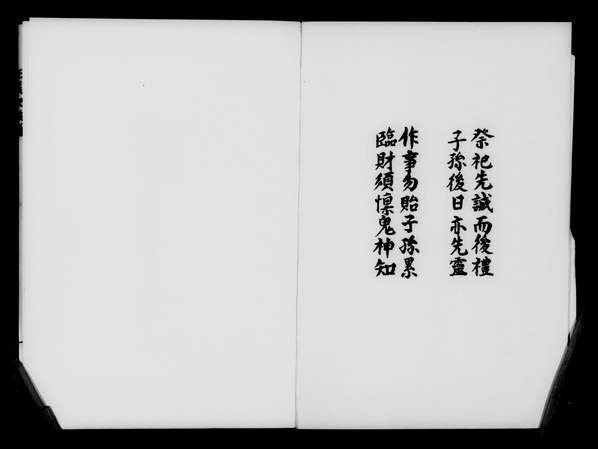 祭祀先誠而後禮
子孫後日亦先靈
作事勿貽子孫累
臨財須懍鬼神知